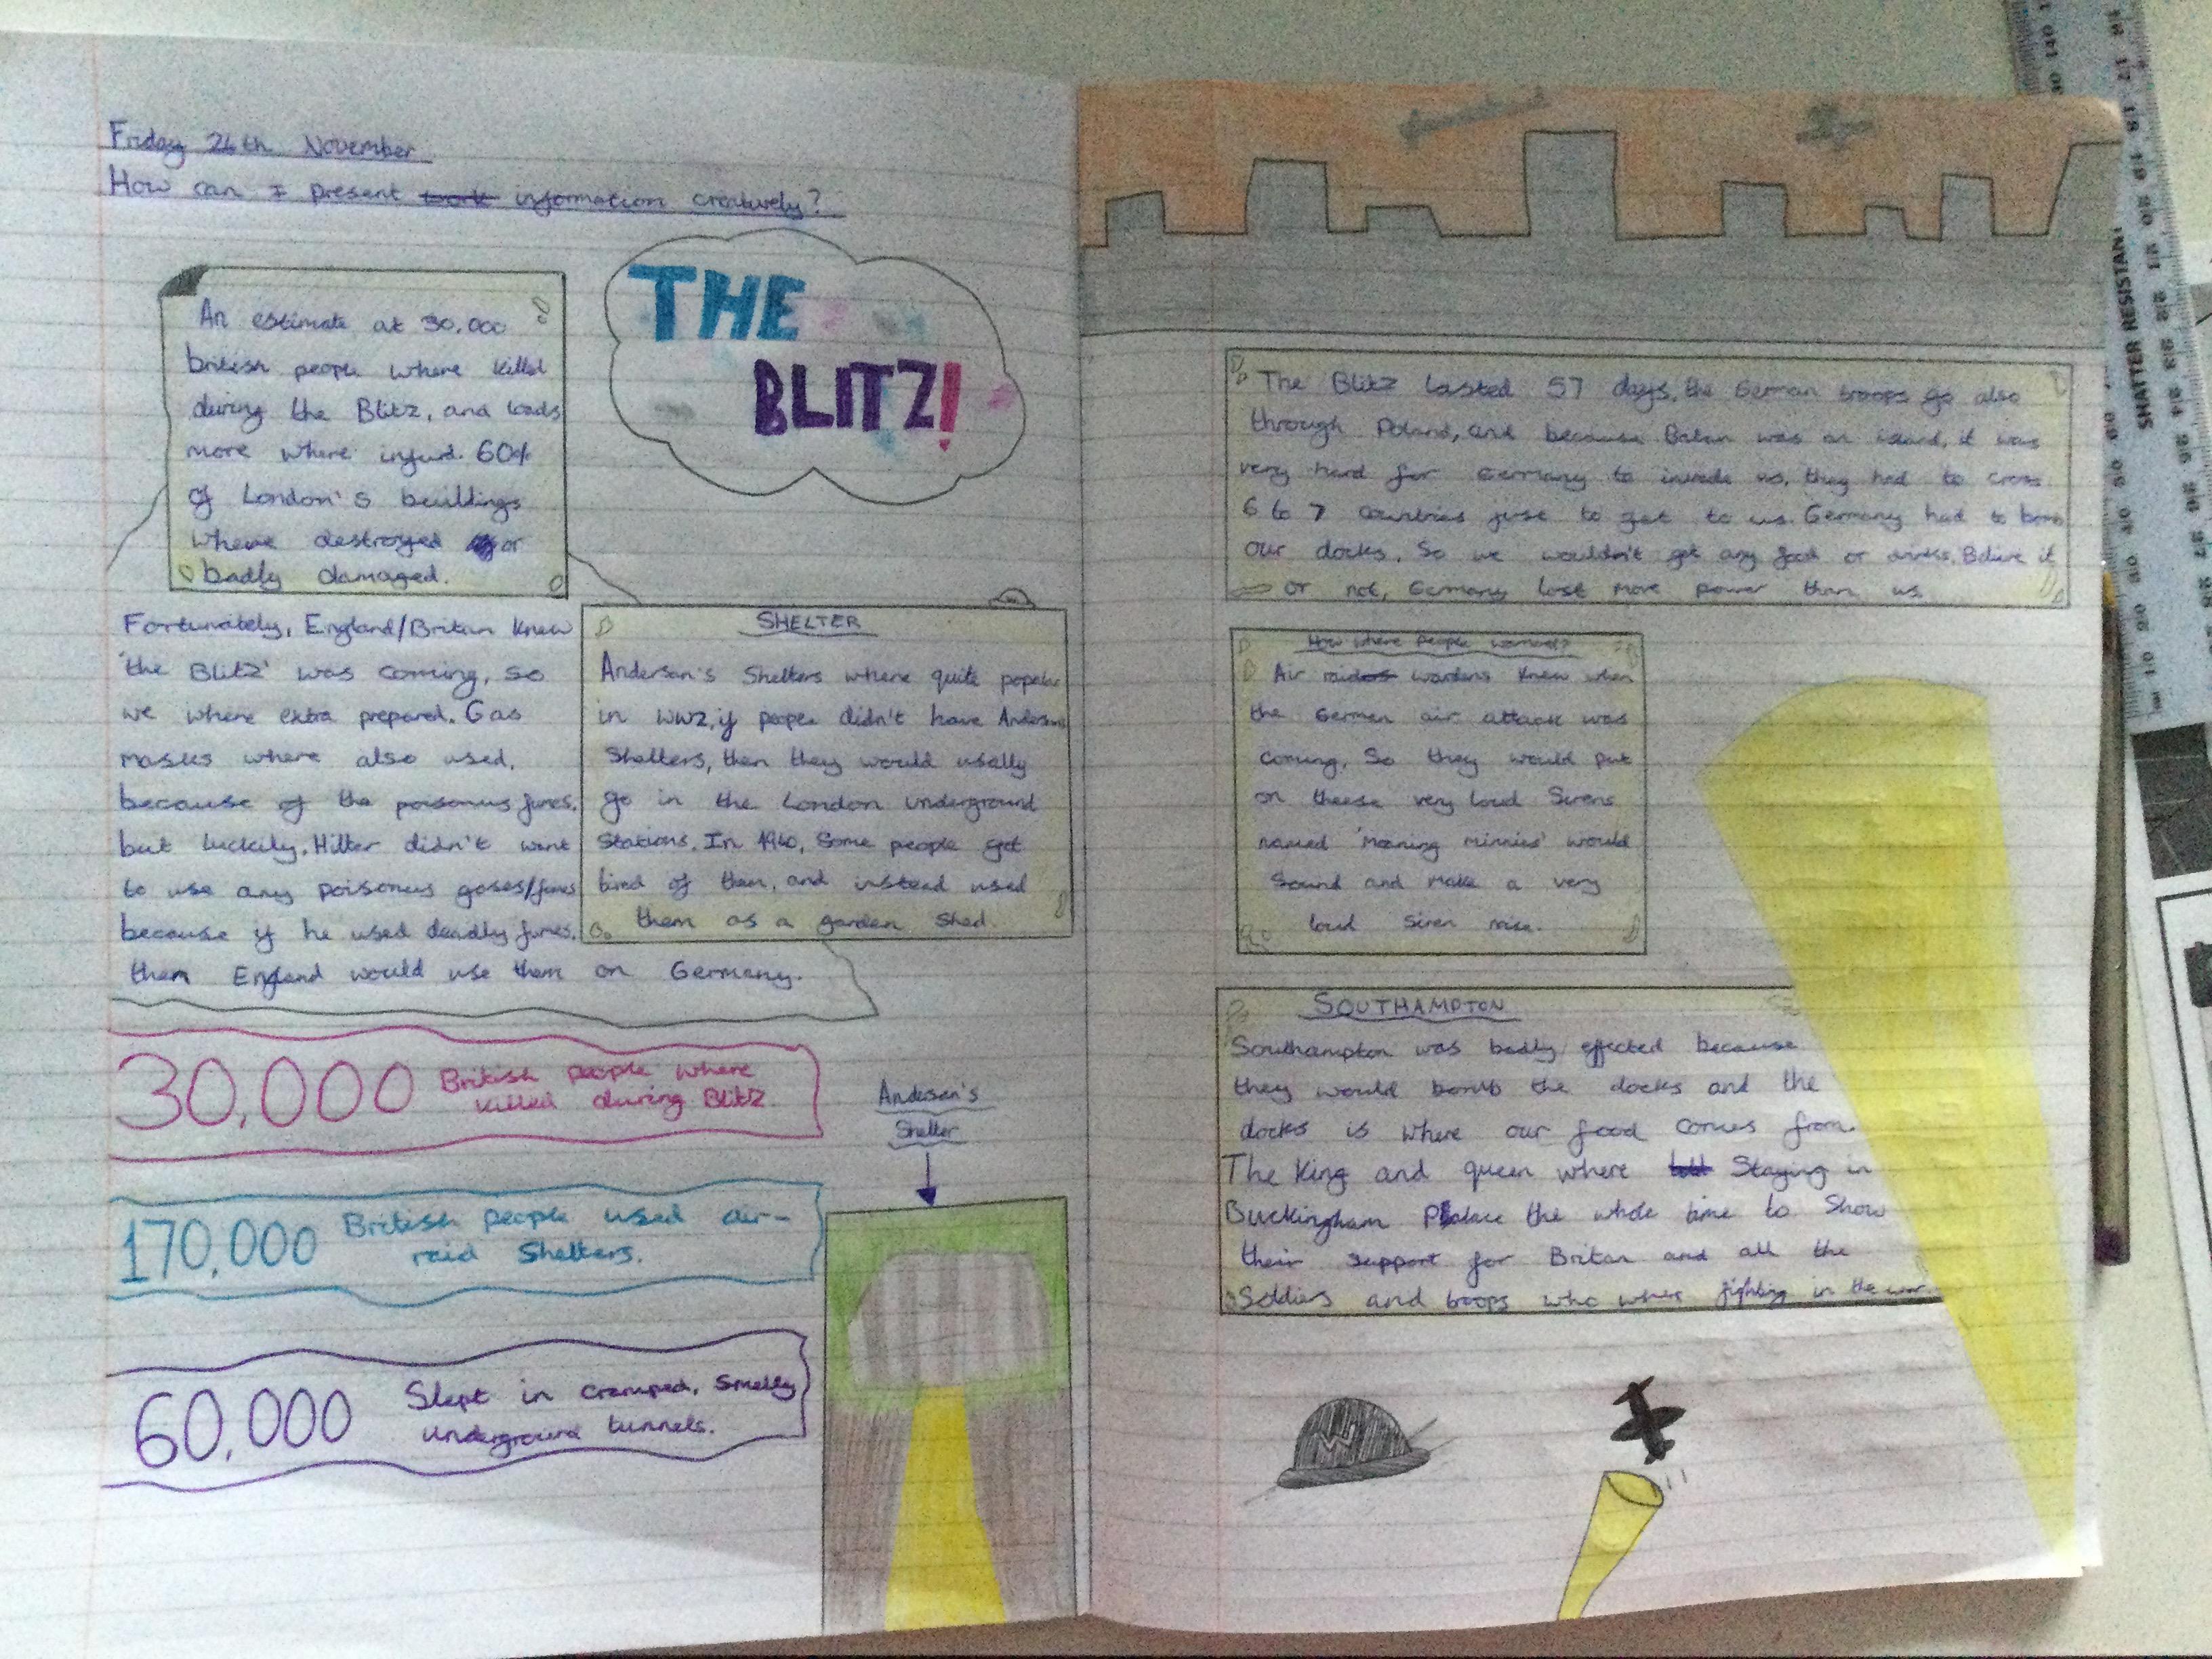 Friday 26th November
How can I present work information creatively?
THE
BLITZ!
An estimate at 30,000
british people where killed
during the Blitz, and loads
more where injurd. 60%
of London's buildings
where destroyed or
badly damaged.
Fortunately, England/Britan knew
'the Blitz' was coming, so
we where extra prepared. Gas
masks where also used,
because of the poisonus fumes,
but luckily, Hitler didn't want
to use any poisonus gases/fumes
because if he used deadly fumes,
them England would use them on Germany.
SHELTER
Anderson's Shelters where quite popular
in WW2, if people didn't have Anderson
Shelters, then they would usally
go in the London underground
Stations. In 1940, Some people got
tired of them, and instead used
them as a garden shed.
30,000 British people where
killed during Blitz.
170,000 British people used air-
raid Shelters.
60,000 Slept in cramped, smelly
underground tunnels.
Anderson's
Shelter
The Blitz lasted 57 days, the German troops go also
through Poland, and because Britan was an island, it was
very hard for Germany to invade us, they had to cross
6 to 7 countries just to get to us. Germany had to bomb
our docks, So we wouldn't get any food or drinks. Belive it
or not, Germany lost more power than us.
How where people warned?
Air raid wardens knew when
the German air attack was
coming, So they would put
on theese very loud Sirens
named 'moaning minnies' would
Sound and make a very
loud siren noise.
SOUTHAMPTON
Southampton was badly effected because
they would bomb the docks and the
docks is where our food comes from.
The King and queen where Staying in
Buckingham Palace the whole time to Show
their support for Britan and all the
Soldiers and troops who wher fighting in the war.
SHATTER RESISTANT